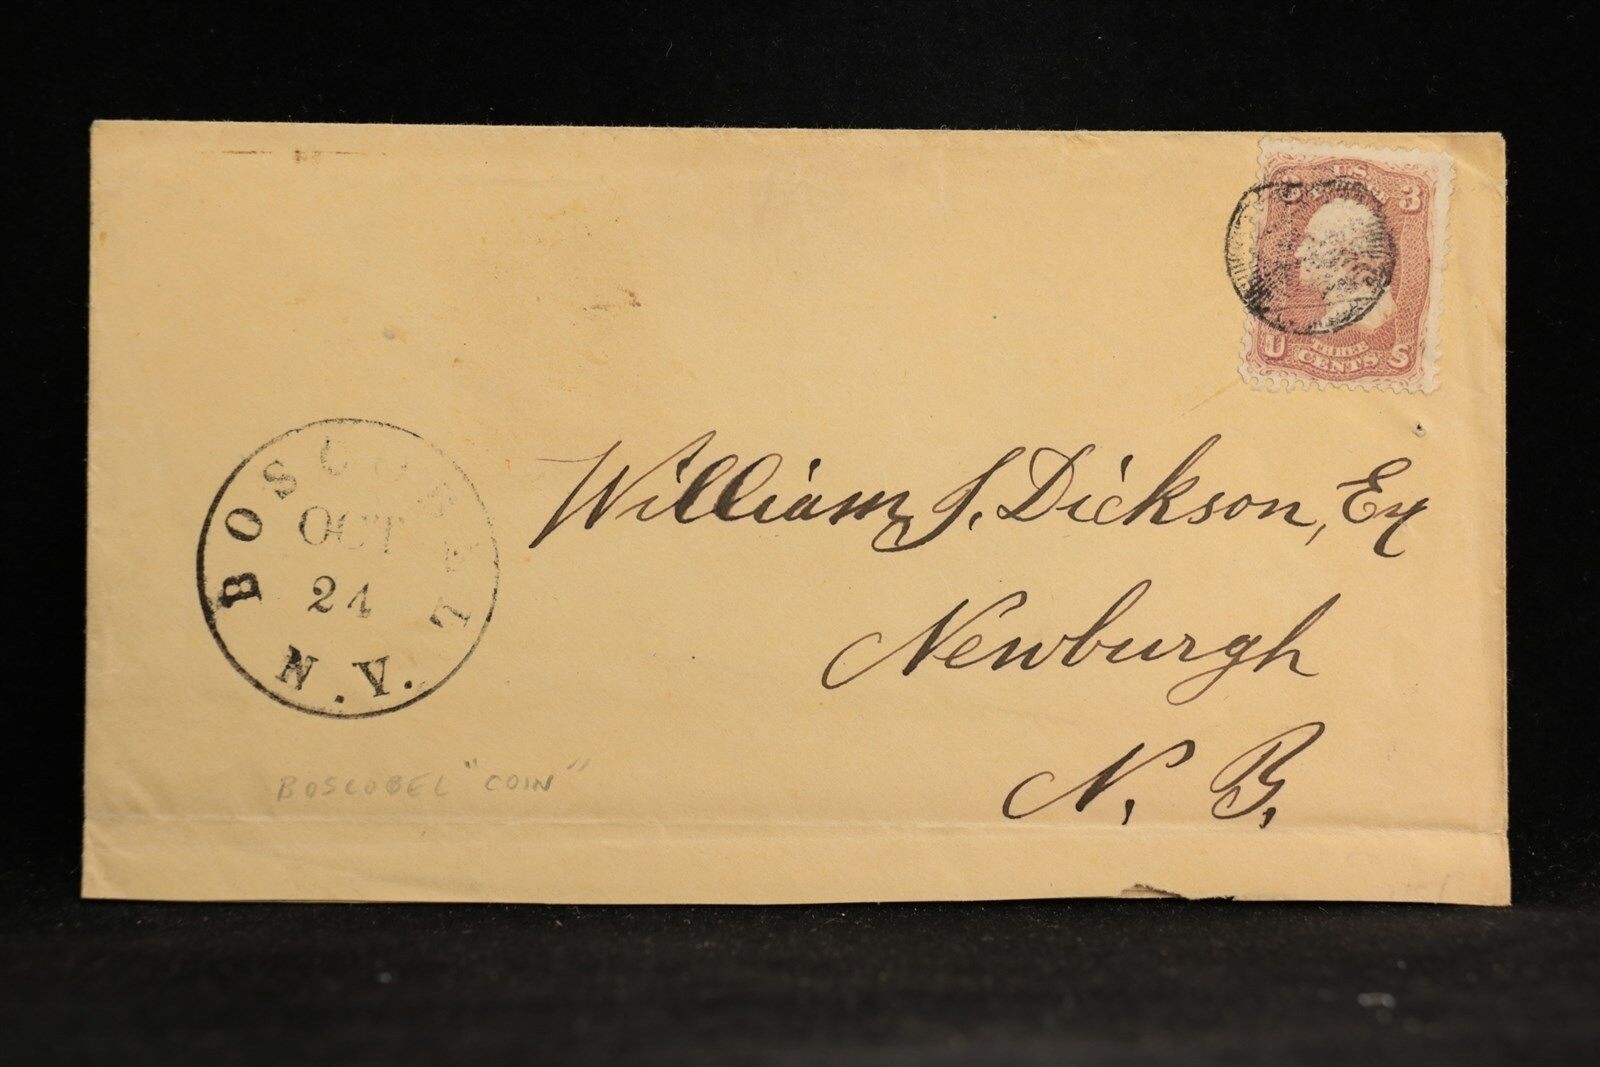 U S
3 3
THREE
CENTS
U S
BOSCOBELL
OCT
24
N.Y.
William S. Dickson, Esq
Newburgh
N. B.
BOSCOBEL "COIN"